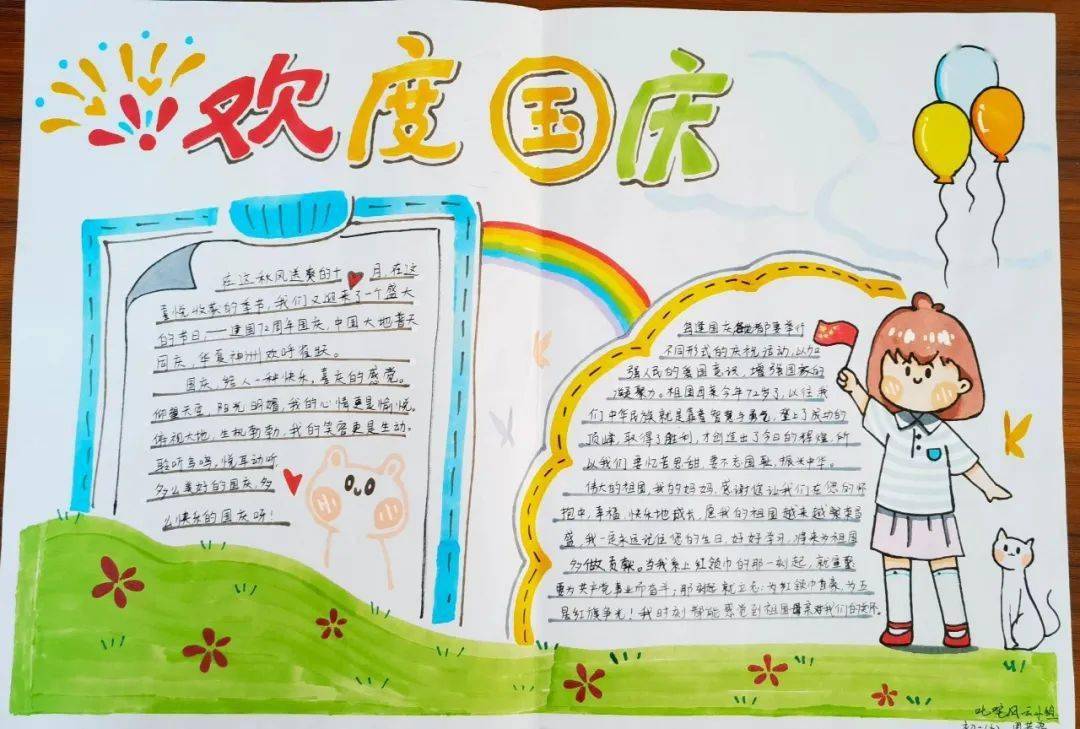 欢度国庆
在这秋风送爽的十月,在这
喜悦收获的季节,我们又迎来了一个盛大
的节日——建国72周年国庆,中国大地普天
同庆,华夏神州欢呼雀跃。
国庆,给人一种快乐,喜庆的感觉。
仰望天空,阳光明媚,我的心情更是愉悦。
俯视大地,生机勃勃,我的笑容更是生动。
聆听鸟鸣,悦耳动听
多么美好的国庆,多
么快乐的国庆呀!
每逢国庆各地都要举行
不同形式的庆祝活动,以加
强人民的爱国意识,增强国家的
凝聚力。祖国母亲今年72岁了,以往我
们中华民族就是靠着智慧与勇气,登上了成功的
顶峰,取得了胜利,才创造出了今日的辉煌,所
以我们要忆苦思甜,要不忘国耻,振兴中华。
伟大的祖国,我的妈妈,感谢您让我们在您的怀
抱中,幸福,快乐地成长,愿我的祖国越来越繁荣昌
盛,我一定永远记住您的生日,好好学习,将来为祖国
多做贡献。当我系上红领巾的那一刻起,就重复
要为共产党事业而奋斗;那刻起就立志:为红领巾自豪,为五
星红旗争光!我时刻都能感觉到祖国母亲对我们的关怀。
叱咤风云小组